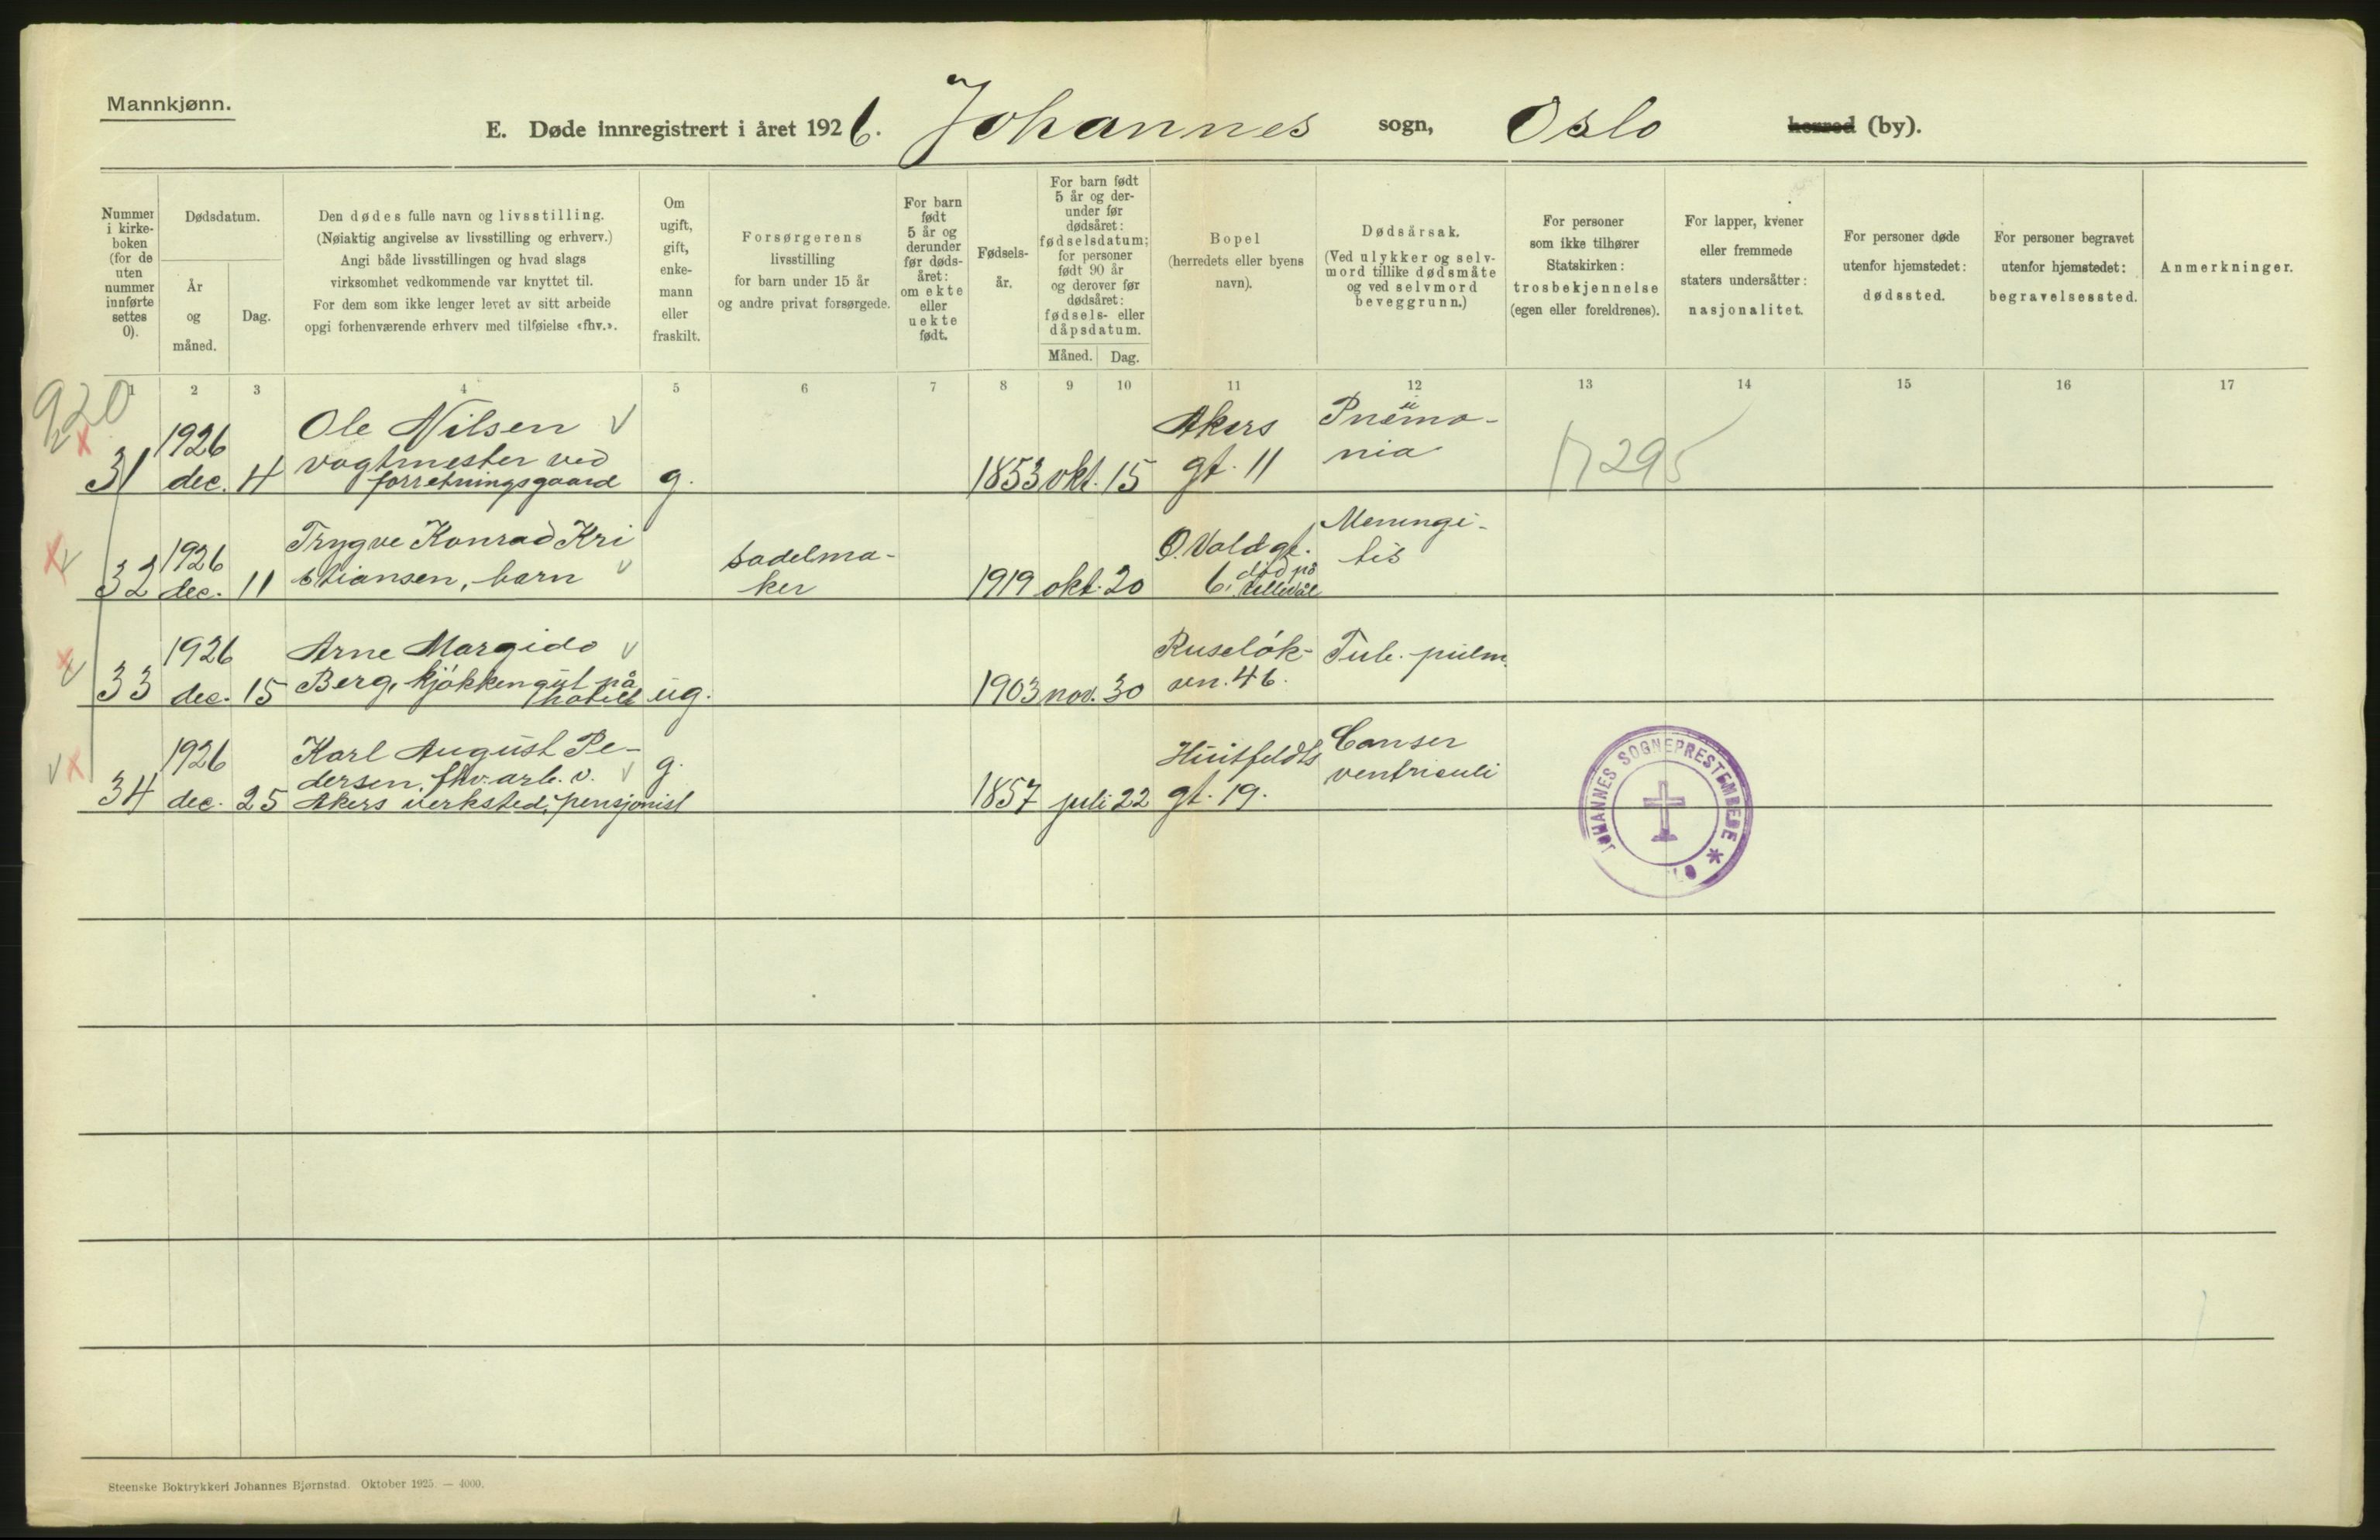 Mannkjønn.
E. Døde innregistrert i året 1926. Johannes sogn, Oslo herred (by).
Nummer i kirke-boken (for de uten nummer innførte settes 0).
Dødsdatum.
År og måned.
Dag.
Den dødes fulle navn og livsstilling.
(Nøiaktig angivelse av livsstilling og erhverv.)
Angi både livsstillingen og hvad slags
virksomhet vedkommende var knyttet til.
For dem som ikke lenger levet av sitt arbeide
opgi forhenværende erhverv med tilføielse «fhv.».
Om ugift, gift, enke-mann eller fraskilt.
Forsørgerens
livsstilling
for barn under 15 år
og andre privat forsørgede.
For barn født 5 år og derunder før døds-året: om ekte eller uekte født.
Fødsels-år.
For barn født 5 år og der-under før dødsåret: fødselsdatum; for personer født 90 år og derover før dødsåret: fødsels- eller dåpsdatum.
Måned. Dag.
Bopel
(herredets eller byens
navn).
Dødsårsak.
(Ved ulykker og selv-
mord tillike dødsmåte
og ved selvmord
beveggrunn.)
For personer
som ikke tilhører
Statskirken:
trosbekjennelse
(egen eller foreldrenes).
For lapper, kvener
eller fremmede
staters undersåtter:
nasjonalitet.
For personer døde
utenfor hjemstedet:
dødssted.
For personer begravet
utenfor hjemstedet:
begravelsessted.
Anmerkninger.
1 2 3 4 5 6 7 8 9 10 11 12 13 14 15 16 17
920
31 1926 dec. 4 Ole Nilsen
vagtmester ved
forretningsgaard g. 1853 okt. 15 Akers
gt. 11 Pneumo-
nia 17295
32 1926 dec. 11 Trygve Konrad Kri
stiansen, barn sadelma-
ker 1919 okt. 20 O. Vold gt.
6, død på
Ullevål Meningi-
tis
33 1926 dec. 15 Arne Margido
Berg, kjøkkengut på
hotell ug. 1903 nov. 30 Ruseløk-
vn. 46. Tub. pulm.
34 1926 dec. 25 Karl August Pe-
dersen, fhv. arb. v.
Akers verksted, pensjonist g. 1857 juli 22 Huitfeldts
gt. 19. Canser
ventriculi
JOHANNES SOGNEPRESTEMBEDE *
Steenske Boktrykkeri Johannes Bjørnstad. Oktober 1925. — 4000.